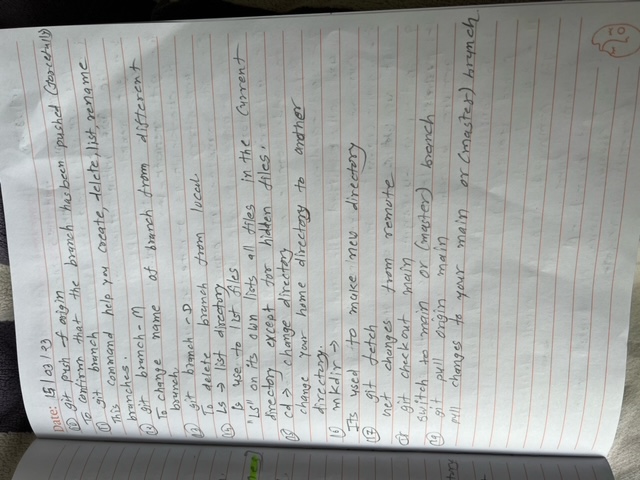 Date: 15/03/23
(10) git push -f origin
To confirm that the branch has been pushed (forcefully)
(11) git branch
This command help you create, delete, list, rename
branches.
(12) git branch -M
To change name of branch from different
branch
(13) git branch -D
To delete branch from local.
(14) Ls → list directory
is use to list files
"Ls" on its own lists all files in the current
directory except for hidden files.
(15) cd → change directory
change your home directory to another
directory.
(16) mkdir →
Its used to make new directory
(17) git fetch
net changes from remote
(18) git checkout main
switch to main or (master) branch
(19) git pull origin main
pull changes to your main or (master) brynch